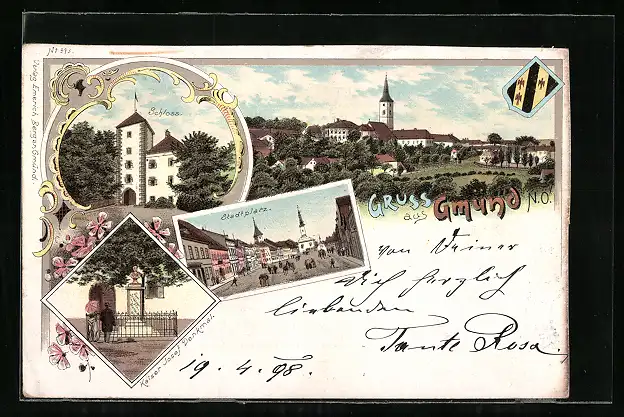 Nº 391.
Verlag Emerich Berger Gmünd.
Schloss.
Stadtplatz.
Kaiser Josef Denkmal.
GRUSS
aus Gmünd N.Ö.
von Deiner
Dich herzlich
liebenden
Tante Rosa.
19.4.98.